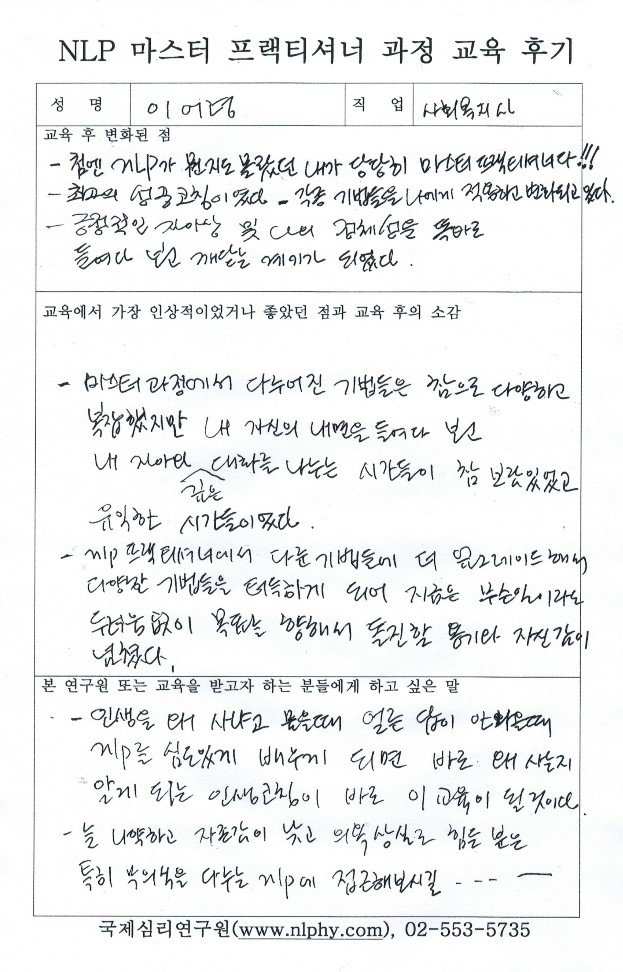 NLP 마스터 프랙티셔너 과정 교육 후기
성 명 이어령 직 업 사회복지사
교육 후 변화된 점
- 첨엔 NLP가 뭔지도 몰랐던 내가 당당히 마스터 프랙티셔너다!!!
- 최고의 성공코칭이였다 - 각종 기법들을 나에게 적용하고 변화되고 있다.
- 긍정적인 자아상 및 나의 정체성을 똑바로
들여다 보고 깨닫는 계기가 되었다.
교육에서 가장 인상적이었거나 좋았던 점과 교육 후의 소감
- 마스터과정에서 다누어진 기법들은 참으로 다양하고
복잡했지만 내 자신의 내면을 들여다 보고
내 자아와 깊은 대화를 나누는 시간들이 참 보람있었고
유익한 시간들이였다.
- nlp 프랙티셔너에서 다룬 기법들에 더 업그레이드해서
다양한 기법들을 터득하게 되어 지금은 무슨일이라도
두려움없이 목표를 향해서 돌진할 용기와 자신감이
넘쳤다.
본 연구원 또는 교육을 받고자 하는 분들에게 하고 싶은 말
- 인생을 왜 사냐고 물을때 얼른 답이 안나올때
nlp를 심도있게 배우게 되면 바로 왜 사는지
알게 되는 인생코칭이 바로 이 교육이 될것이다.
- 늘 나약하고 자존감이 낮고 의욕상실로 힘든 분은
특히 무의식을 다누는 nlp에 접근해보시길 - - - ㅡ
국제심리연구원(www.nlphy.com), 02-553-5735